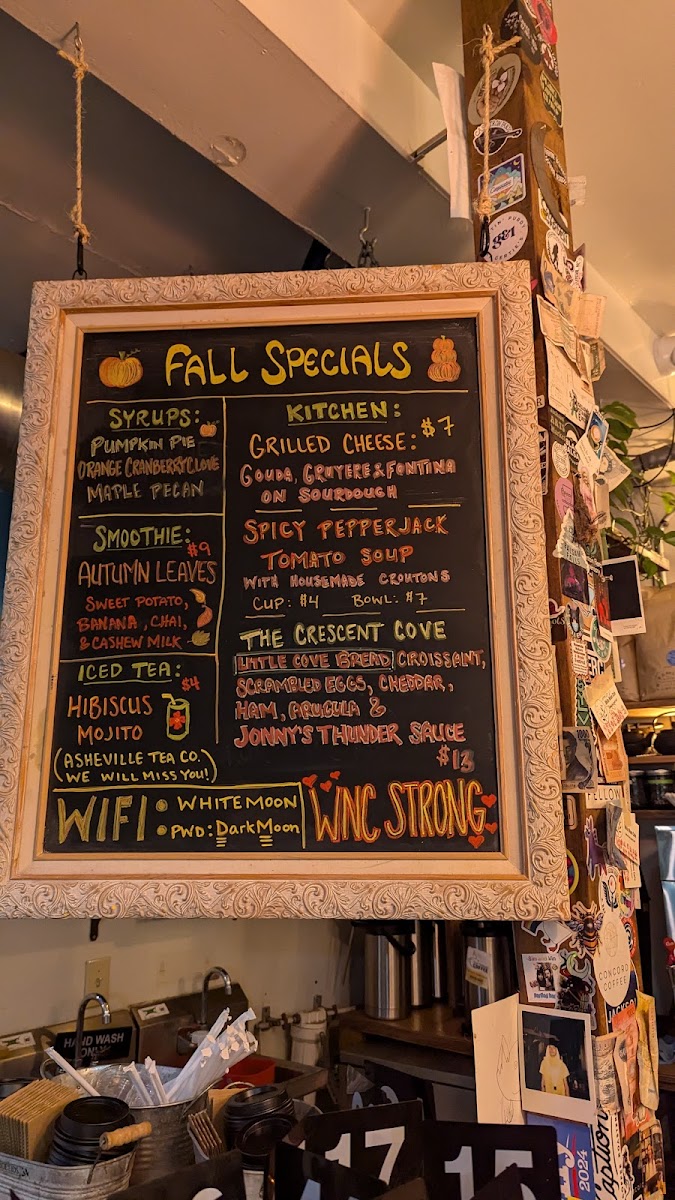 FALL SPECIALS
SYRUPS:
PUMPKIN PIE
ORANGE CRANBERRY CLOVE
MAPLE PECAN
SMOOTHIE:
$9
AUTUMN LEAVES
SWEET POTATO,
BANANA, CHAI,
& CASHEW MILK
ICED TEA:
$4
HIBISCUS
MOJITO
(ASHEVILLE TEA CO.
WE WILL MISS YOU!)
KITCHEN:
GRILLED CHEESE: $7
GOUDA, GRUYERE & FONTINA
ON SOURDOUGH
SPICY PEPPERJACK
TOMATO SOUP
WITH HOUSEMADE CROUTONS
CUP: $4 BOWL: $7
THE CRESCENT COVE
LITTLE COVE BREAD CROISSANT,
SCRAMBLED EGGS, CHEDDAR,
HAM, ARUGULA &
JONNY'S THUNDER SAUCE
$13
WIFI • WHITEMOON
• PWD: DarkMoon
WNC STRONG
HAND WASH
ONLY
CONCORD
COFFEE
FELLOW
2024
17
15